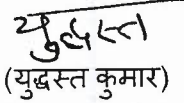 युद्धस्त
(युद्धस्त कुमार)